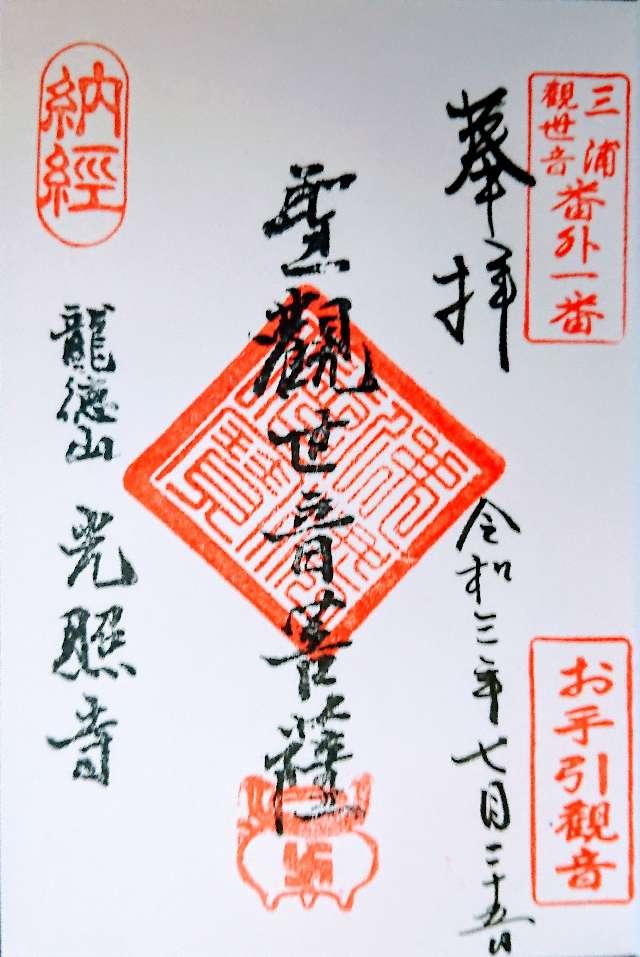 三浦
觀世音
番外一番
奉拝
令和三年七月二十五日
お手引觀音
聖觀世音菩薩
納經
龍徳山
光照寺